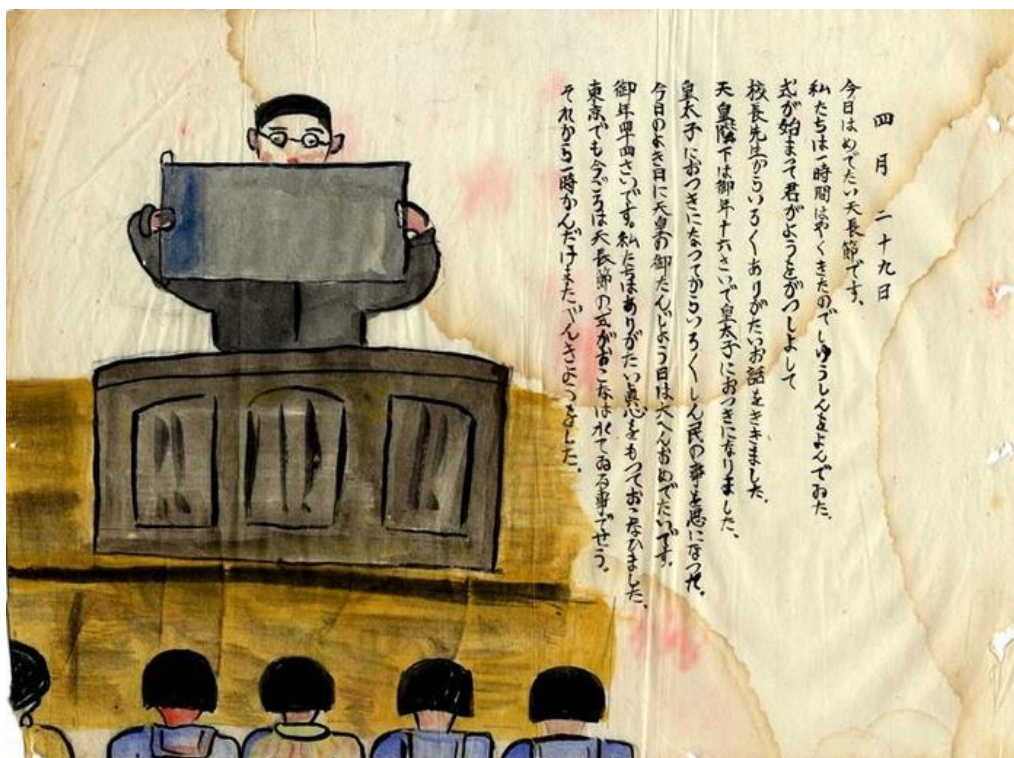 四月二十九日
今日はめでたい天長節です。
私たちは一時間はやくきたのでしゆうしんをよんでゐた。
式が始まつて君がようをがつしよして
校長先生からいろ〱ありがたいお話をききました。
天皇陛下は御年十六さいで皇太子におつきになりました。
皇太子におつきになつてからいろ〱しん民の事を思になつた。
今日のよき日に天皇の御たんじよう日は大へんおめでたいです。
御年四十四さいです。私たちはありがたい眞心をもつておこなひました。
東京でも今ごろは天長節の式がおこなはれてゐる事でせう。
それから一時かんだけまたべんきよつをした。